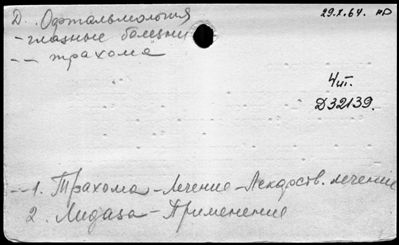 Д. Офтальмология
29.X.64. нр
- глазные болезни
-- трахома
4 т.
Д32139.
-- 1. Трахома - Лечение - Лекарств. лечение
2. Лидаза - Применение